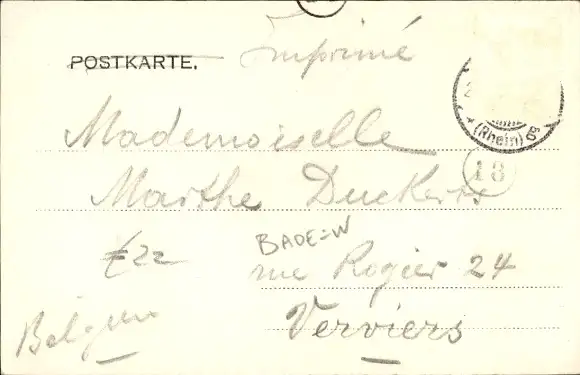 POSTKARTE. Imprimé
(Rhein)
Mademoiselle
18
Marthe Duckerts
BADE=W
£22 rue Rogier 24
Belgien Verviers